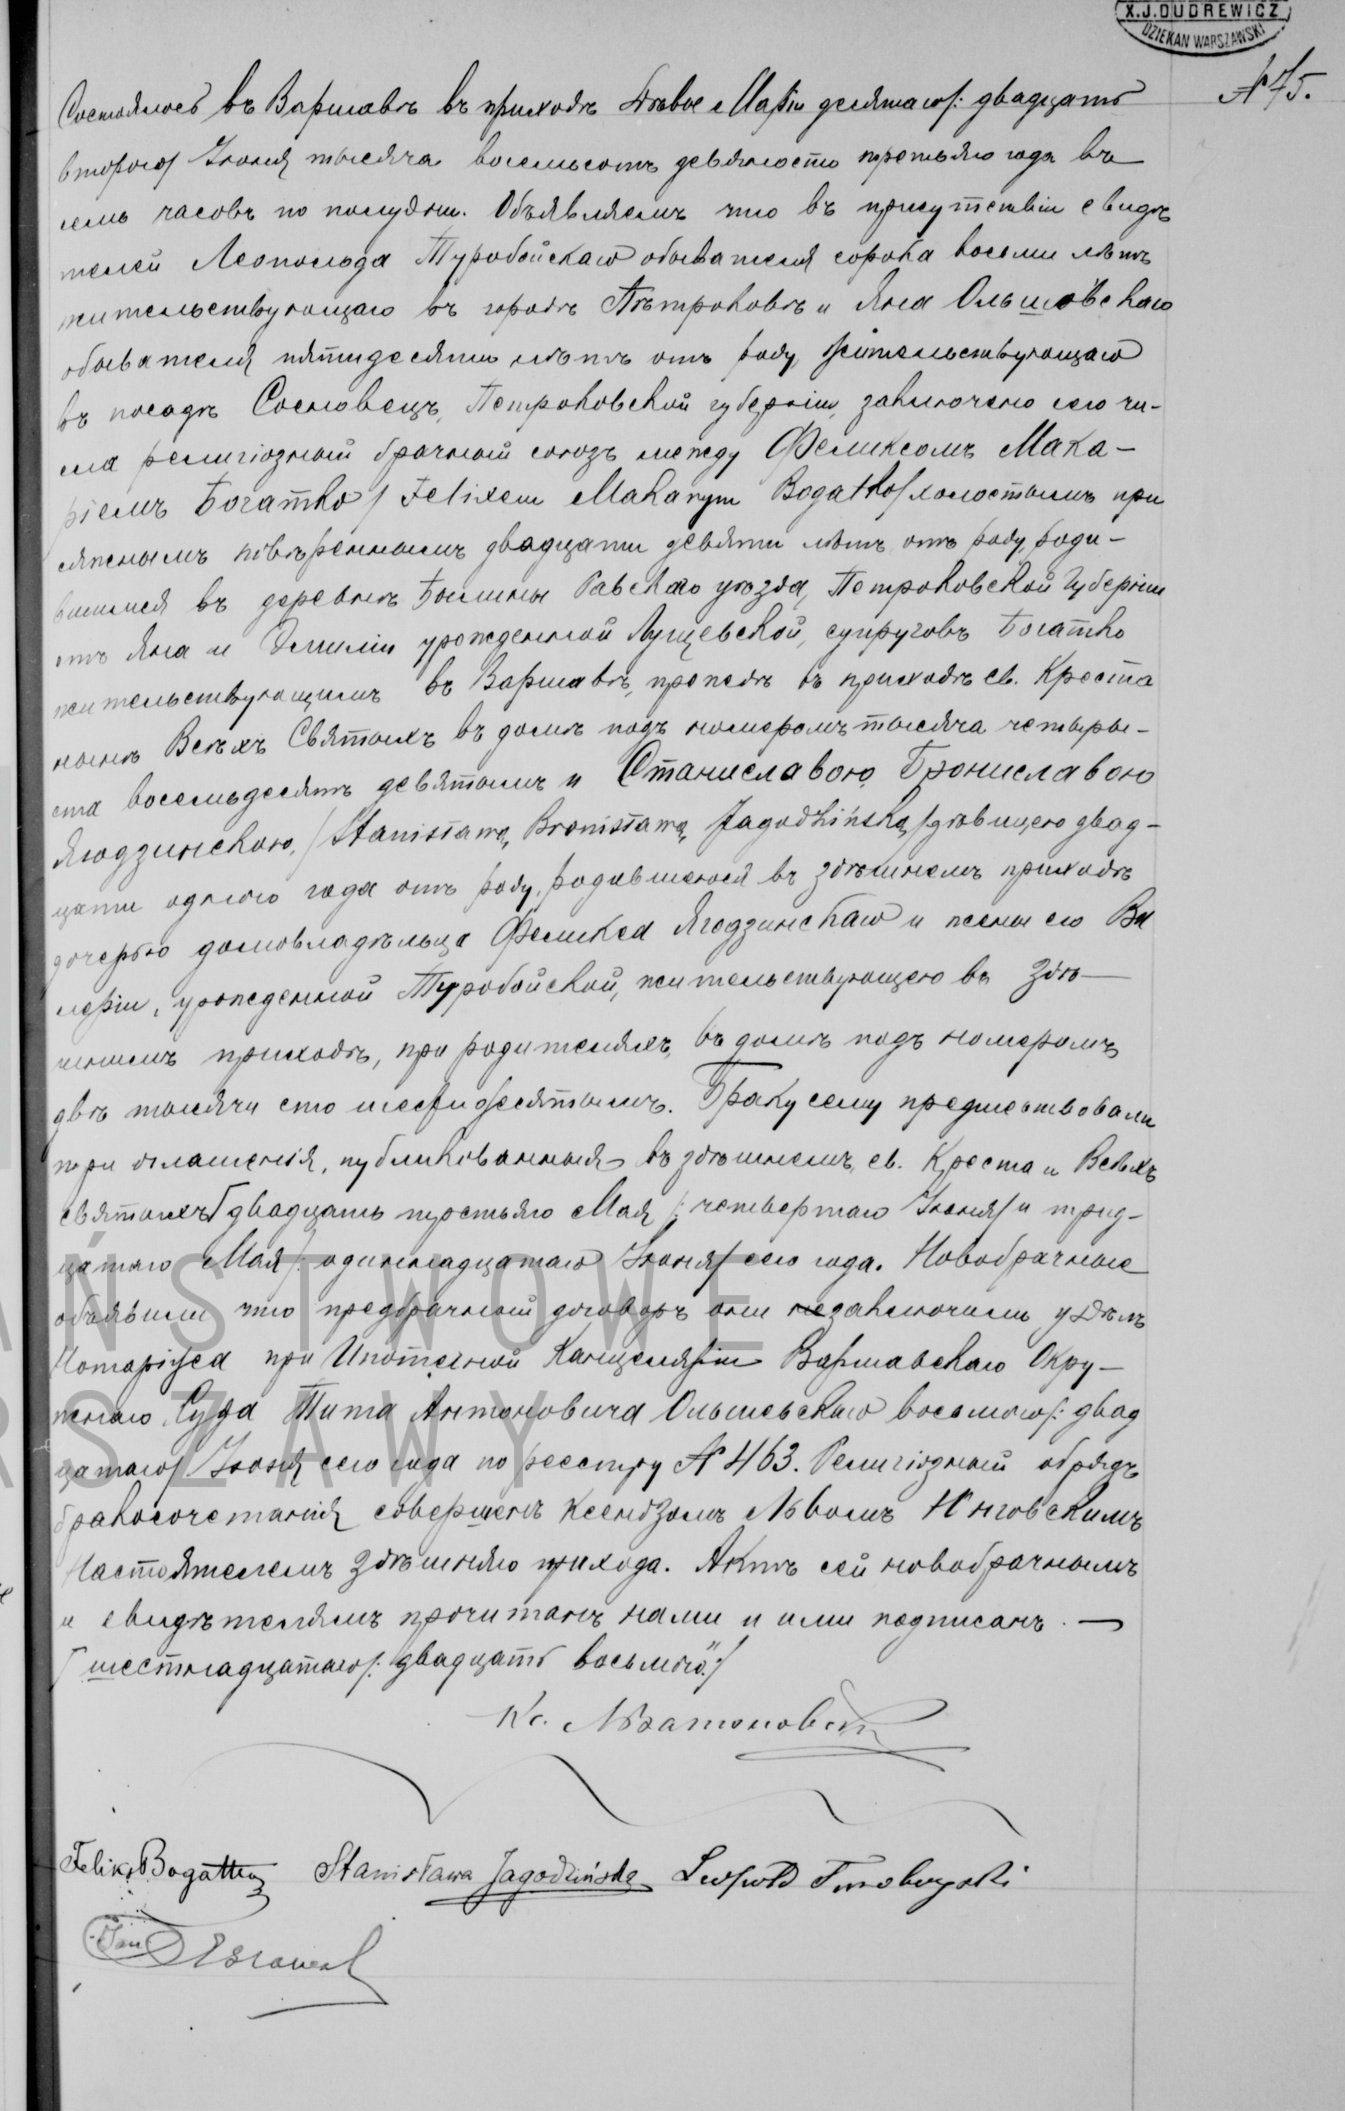 X.J.DUDREWICZ
DZIEKAN WARSZAWSKI
№ 75.
Состоялось въ Варшавѣ въ приходѣ Дѣвы Маріи десятаго/: двадцать
второго/ Іюня тысяча восемьсотъ девяносто третьяго года въ
семь часовъ по полудни. Объявляемъ что въ присутствіи свидѣ
телей Леопольда Туробойскаго обывателя сорока восьми лѣтъ
жительствующаго въ городѣ Петроковѣ и Яна Ольшовскаго
обывателя пятидесяти лѣтъ отъ роду, жительствующаго
въ посадѣ Сосновецъ, Петроковской губерніи, заключено сего чи-
сла религіозный брачный союзъ между Феликсомъ Мака-
ріемъ Богатко/ Felixem Makarym Bogatko/ холостымъ при
сяжнымъ повѣреннымъ двадцати девяти лѣтъ отъ роду, роди-
вшимся въ деревнѣ Равскаго уѣзда, Петроковской Губерніи
отъ Яна и Эмиліи урожденной Лущевской, супруговъ Богатко
жительствующимъ въ Варшавѣ, прежде въ приходѣ св. Креста
нынѣ Всѣхъ Святыхъ въ домѣ подъ номеромъ тысяча четыры-
ста восемьдесятъ девятымъ и Станиславою Брониславою
Ягодзинскою, /Stanisławą Bronisławą Jagodzińską/ дѣвицею двад-
цати одного года отъ роду, родившеюся въ здѣшнемъ приходѣ
дочерью домовладѣльца Феликса Ягодзинскаго и жены его Ва
леріи, урожденной Туробойской, жительствующею въ здѣ-
шнемъ приходѣ, при родителяхъ, въ домѣ подъ номеромъ
двѣ тысячи сто шестидесятымъ. Браку сему предшествовали
три оглашенія, публикованныя въ здѣшнемъ, св. Креста и Всѣхъ
святыхъ двадцать третьяго Мая /: четвертаго Іюня/ и трид-
цатаго Мая/: одиннадцатаго Іюня/ сего года. Новобрачные
объявили что предбрачный договоръ они заключили у Дѣлъ
Нотаріуса при Ипотечной Канцеляріи Варшавскаго Окру-
жнаго Суда Тита Антоновича Ольшевскаго восьмого/: двад
цатаго/ Іюня сего года по реестру № 463. Религіозный обрядъ
бракосочетанія совершенъ Ксендзомъ Львомъ
Настоятелемъ здѣшняго прихода. Актъ сей новобрачнымъ
и свидѣтелямъ прочитанъ нами и ими подписанъ. —
/ шестнадцатаго/: двадцать восьмого:/
Кс.
Feliks Bogatko Stanisława Jagodzińska Leopold Turoboyski
Jan
PAŃSTWOWE
WARSZAWY